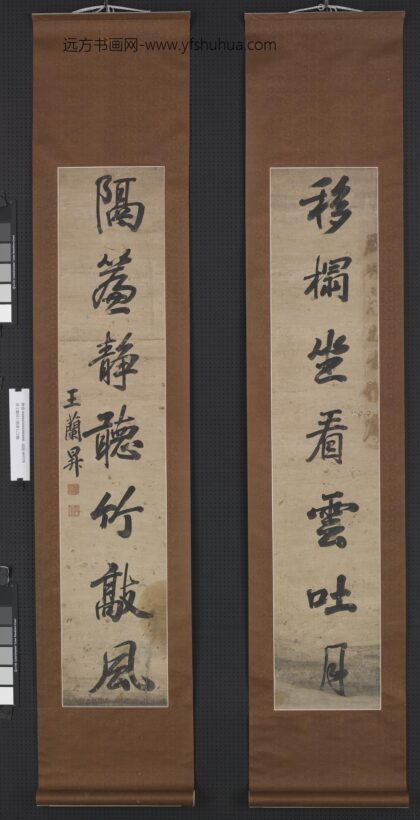 远方书画网-www.yfshuhua.com
移榻坐看雲吐月
隔簾静聽竹敲風
王蘭昇